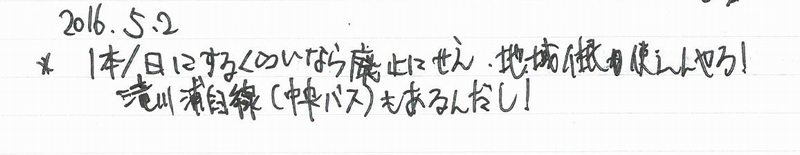 2016.5.2
* 1本/日にするくらいなら廃止にせえ.地域住民も使えんやろ!
滝川浦臼線(中央バス)もあるんだし!